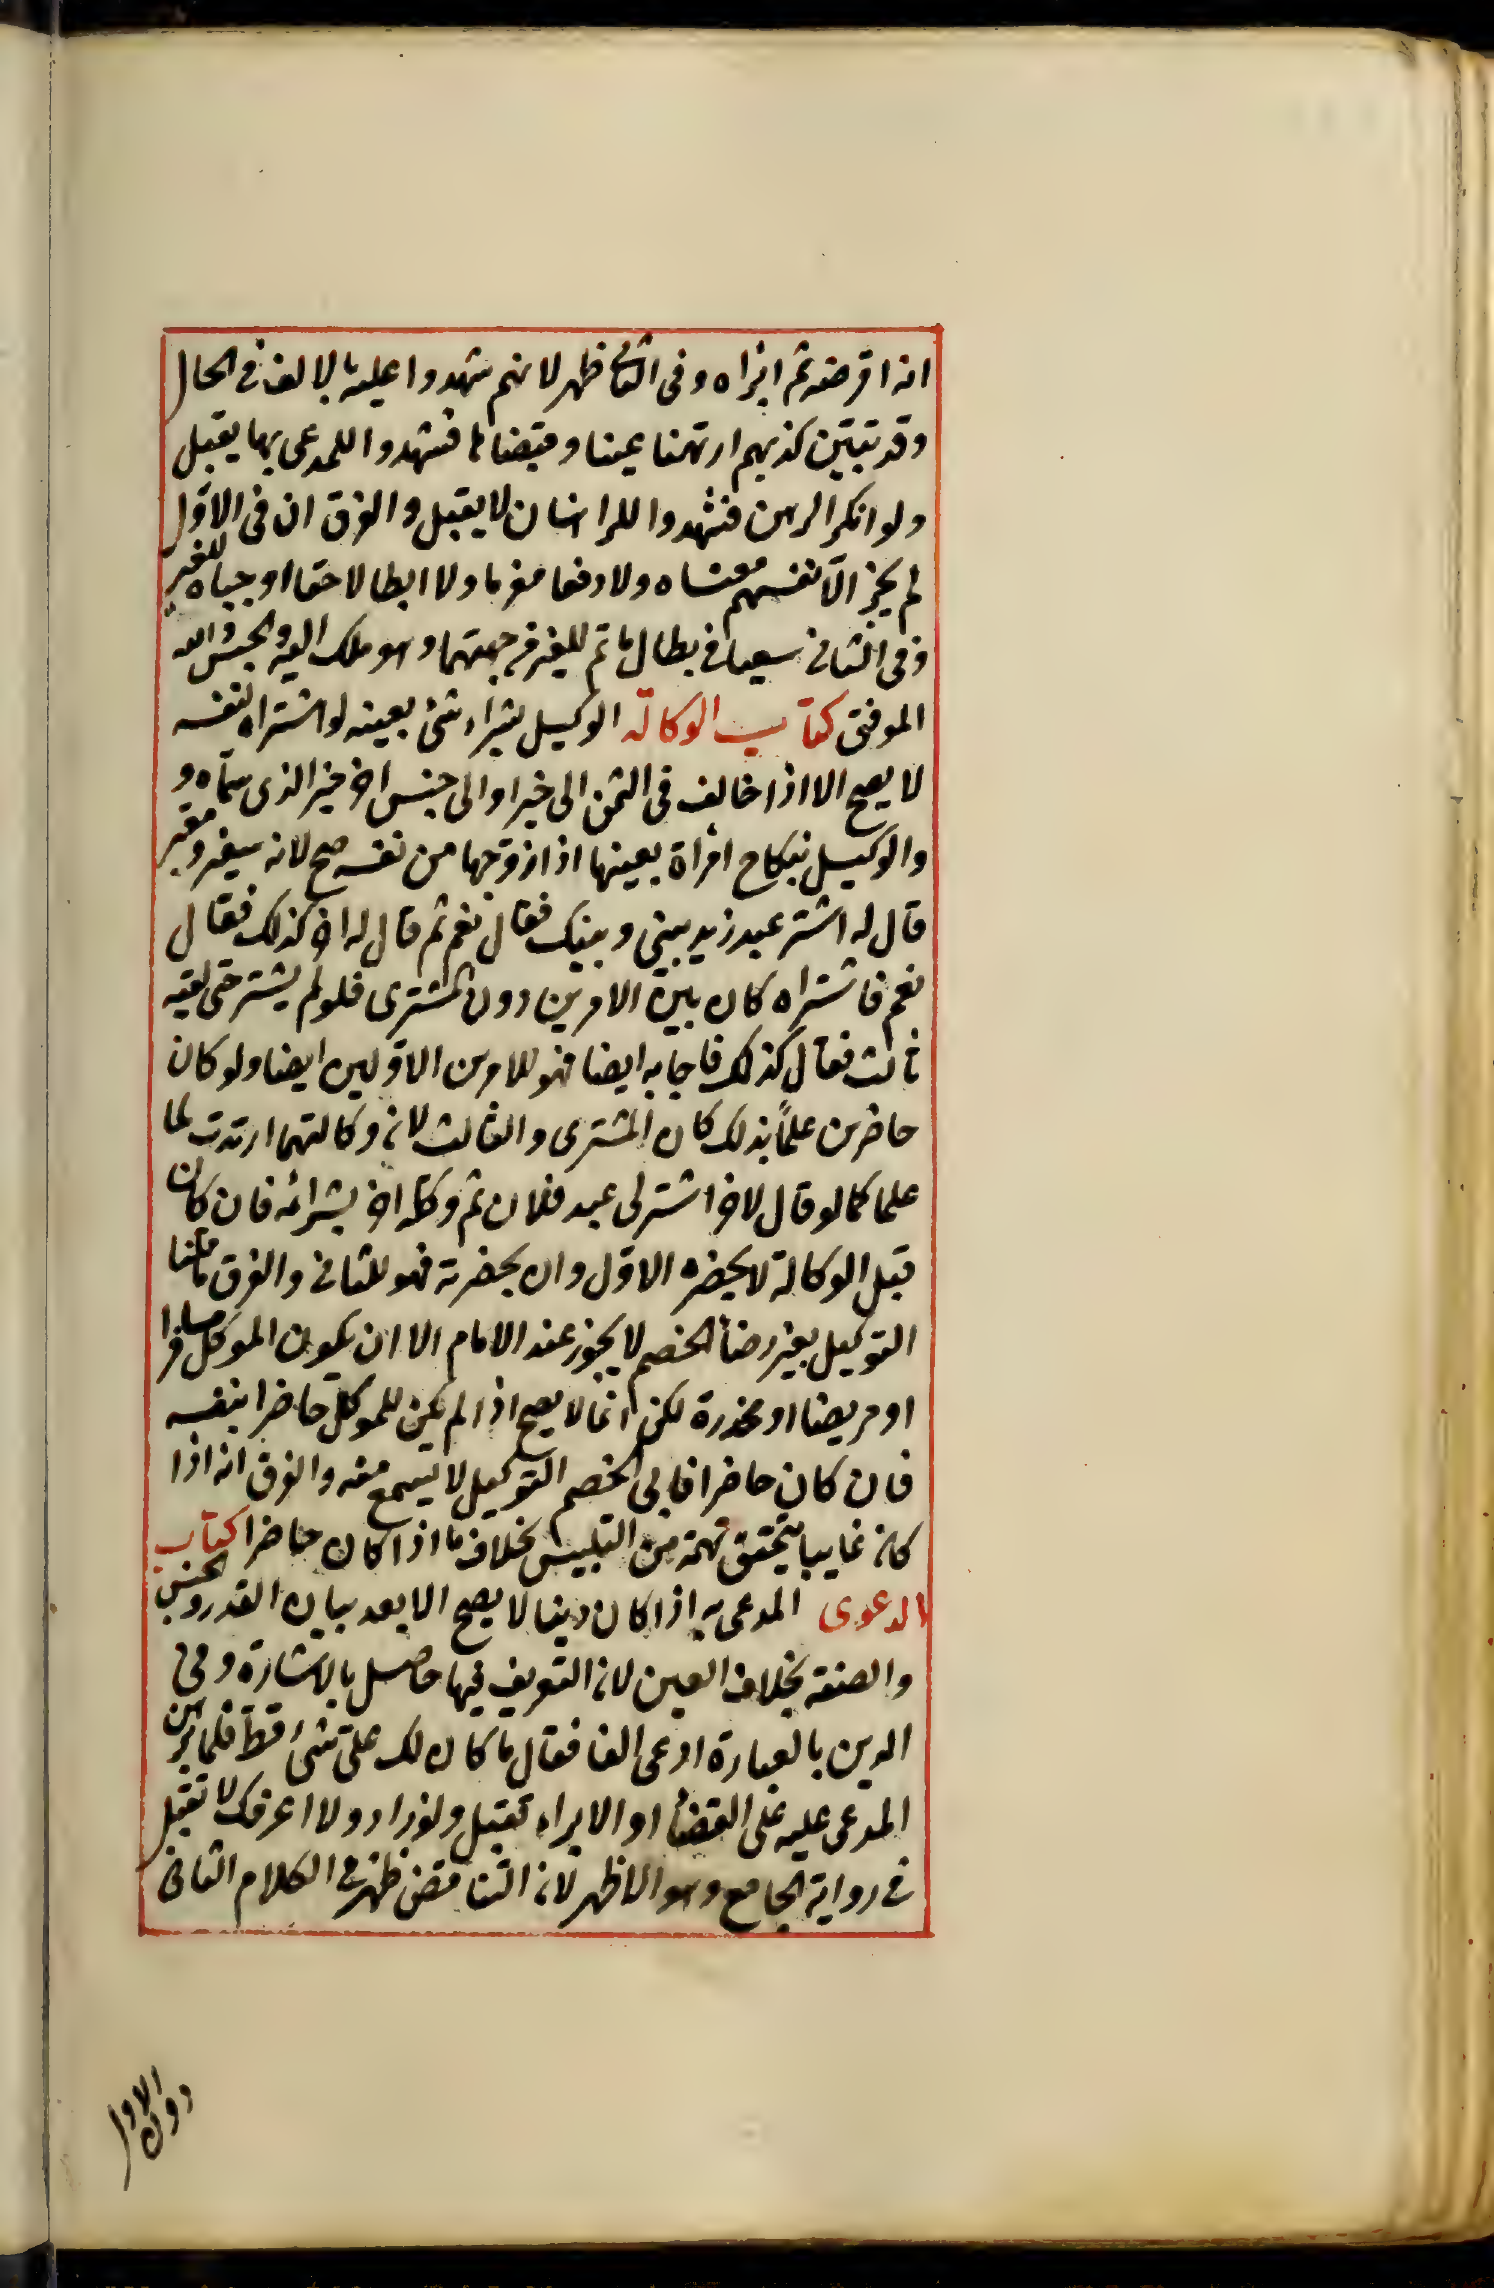 انه اقرضه ثم ابراه وفى الثانى ظهر لانهم شهدوا عليه بالالف فى الحال
وقد تبتين كذبهم ارتهنا عينا وقبضاها فشهدوا للمدعى بها يقبل
ولو انكر الرهن فشهدوا للراهنان لا يقبل والفرق ان فى الاوّل
لم يجز الّا نفسهم مغنماه ولا دفعا مغرما ولا ابطالا حقا اوجباه للغير
وفى الثانى سعيا فى بطال ما تم للغير فى جهتهما وهو ملك اليد والحبس والله
الموفق كتاب الوكالة الوكيل بشراء شئ بعينه لو اشتراه لنفسه
لا يصح الا اذا خالف فى الثمن الى خير او الى جنس اخر غير الذى سمّاه و
والوكيل بنكاح امراة بعينها اذا زوّجها من نفسه صح لانه سفير ومعبر
قال له اشتر عبد زيد بينى وبينك فقال نعم ثم قال له اخر كذلك فقال
نعم فاشتراه كان بين الامرين دون المشترى فلو لم يشتر حتى لقيه
ثالث فقال كذلك فاجابه ايضا فهو للامرين الاوّلين ايضا ولو كان
حاضرين علمًا بذلك كان المشترى والثالث لان وكالتهما ارتدت لما
علما كما لو قال لاخر اشتر لى عبد فلان ثم وكله اخر بشرائه فان كان
قبل الوكالة لا بحضره الاوّل وان بحضرته فهو للثانى والفرق ما قلنا
التوكيل بغير رضأ الخصم لا يجوز عند الامام الا ان يكون الموكل مسافرا
او مريضا او مخدرة لكن انما لا يصح اذا لم يكن للموكل حاضرا بنفسه
فان كان حاضرا فابى الخصم التوكيل لا يسمع منه والفرق انه اذا
كان غايبا يتحقق تهمة من التلبيس بخلاف ما اذا كان حاضرا كتاب
الدعوى المدعى به اذا كان دينا لا يصح الا بعد بيان القدر والجنس
والصفة بخلاف العين لان التعريف فيها حاصل بالاشارة وفى
الدين بالعبارة ادعى الفا فقال ما كان لك علىّ شئ قط فلما برهن
المدعى عليه على القضأ او الابراء تقبل ولو زاد ولا اعرفك لا تقبل
فى رواية الجامع وهو الاظهر لان التناقض ظهر فى الكلام الثانى
دون الاول